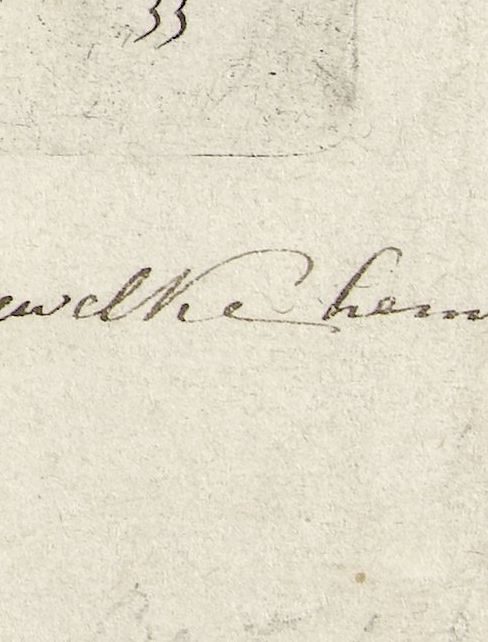 33
ewelke hem